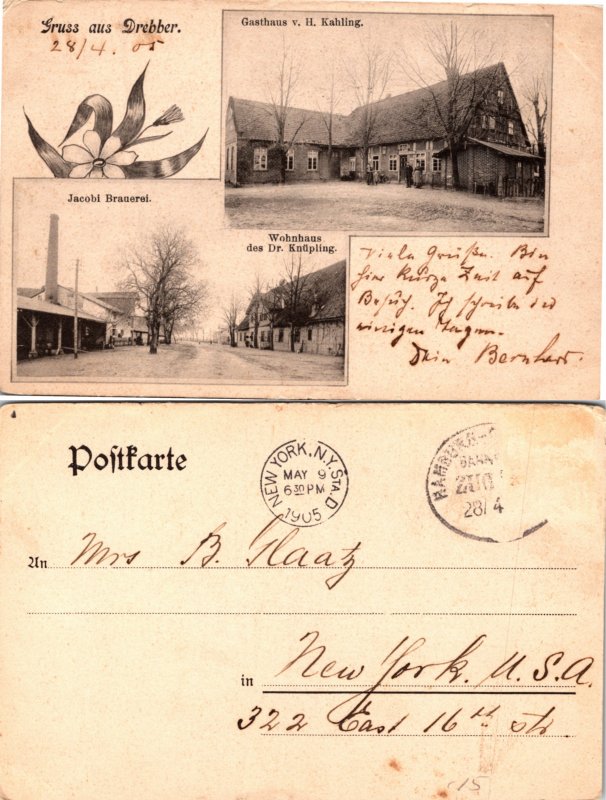 Gruss aus Drebber.
28/4. 05
Gasthaus v. H. Kahling.
Jacobi Brauerei.
Wohnhaus
des Dr. Knüpling.
Viele Grüße. Bin
hier kurze Zeit auf
Besuch. Ich schreibe in
einigen Tagen.
Dein Bernhard.
Postkarte
NEW YORK, N.Y. STA. D
MAY 9
6 30 PM
1905
HAMBURG-
BAHN
ZUG
28/4
An Mrs B. Glaatz
in New York. U. S. A.
322 East 16th Str.
15